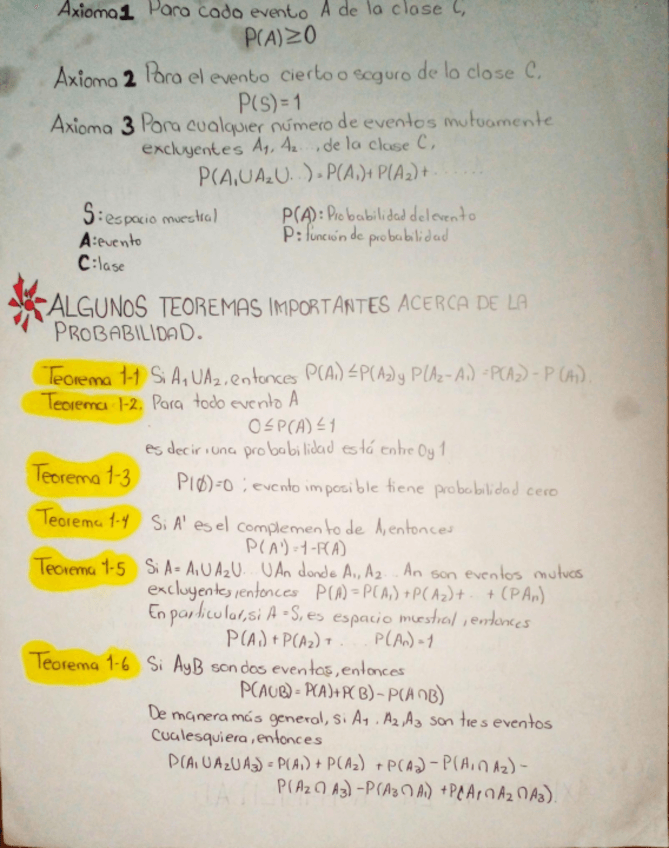 Axioma 1 Para cada evento A de la clase C,
P(A)≥0
Axioma 2 Para el evento cierto o seguro de la clase C.
P(S)=1
Axioma 3 Para cualquier número de eventos mutuamente
excluyentes A₁, A₂ ..., de la clase C,
P(A₁UA₂U...)=P(A₁)+P(A₂)+......
S: espacio muestral P(A): Probabilidad del evento
A: evento P: función de probabilidad
C: lase
ALGUNOS TEOREMAS IMPORTANTES ACERCA DE LA
PROBABILIDAD.
Teorema 1-1 Si A₁UA₂, entonces P(A₁)≤P(A₂) y P(A₂-A₁)=P(A₂)-P(A₁).
Teorema 1-2. Para todo evento A
0≤P(A)≤1
es decir, una probabilidad está entre 0 y 1
Teorema 1-3 P(∅)=0; evento imposible tiene probabilidad cero
Teorema 1-4 Si A' es el complemento de A, entonces
P(A')=1-P(A)
Teorema 1-5 Si A= A₁UA₂U... UAn donde A₁, A₂... An son eventos mutuos
excluyentes, entonces P(A)=P(A₁)+P(A₂)+...+(PAn)
En particular, si A=S, es espacio muestral, entonces
P(A₁)+P(A₂)+.... P(An)=1
Teorema 1-6 Si A y B son dos eventos, entonces
P(AUB)=P(A)+P(B)-P(A∩B)
De manera más general, si A₁, A₂, A₃ son tres eventos
cualesquiera, entonces
P(A₁UA₂UA₃)=P(A₁)+P(A₂)+P(A₃)-P(A₁∩A₂)-
P(A₂∩A₃)-P(A₃∩A₁)+P(A₁∩A₂∩A₃)